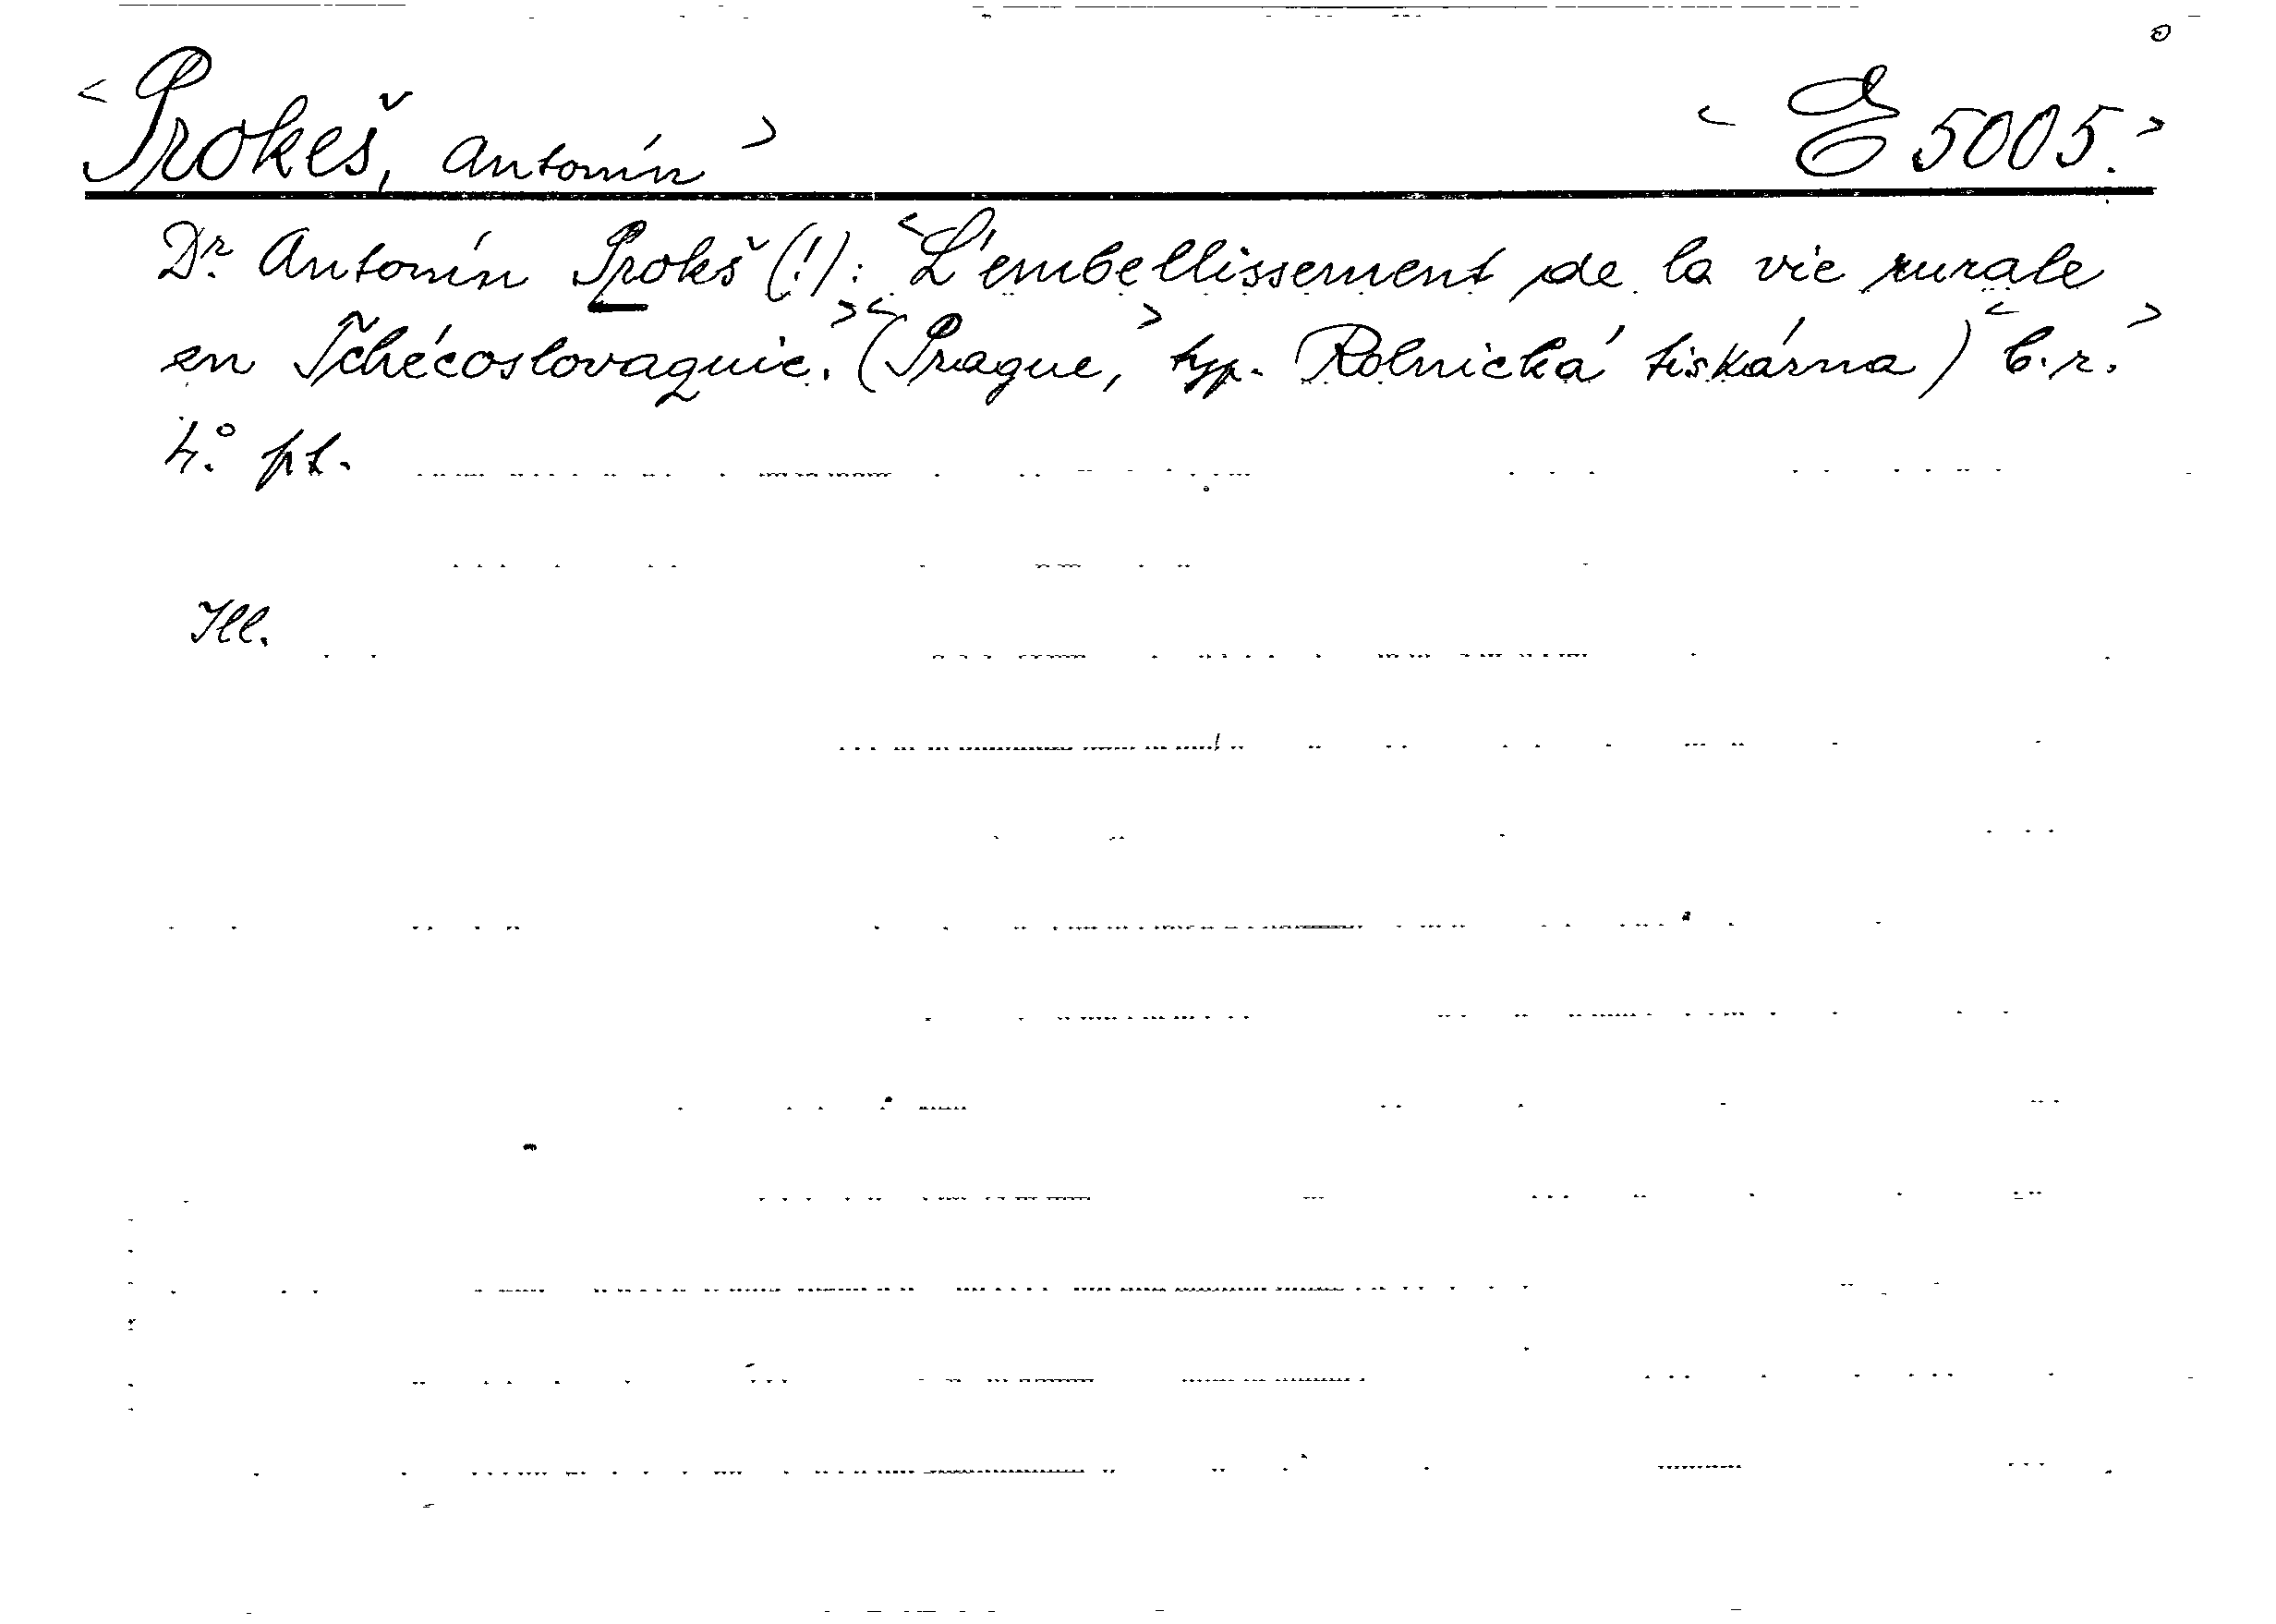 <Prokeš, Antonín> <E 5005.>
Dr. Antonín Prokš (!): <L'embellissement de la vie rurale
en Tchécoslovaquie.> <(Prague,> typ. Rolnická tiskárna) <b.r.>
4.° pt.
Ill.